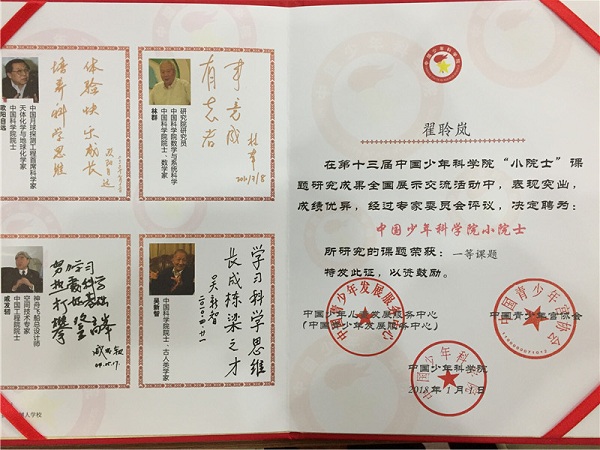 体验快乐成长
培养科学思维
中国月球探测工程首席科学家
天体化学与地球化学家
中国科学院院士
欧阳自远
有志者
事竟成
林群
研究院研究员
中国科学院数学与系统科学
中国科学院院士、数学家
林群
努力学习
攀登高峰
神舟飞船总设计师
空间技术专家
中国工程院院士
戚发轫
学习科学思维
长成栋梁之才
吴新智
二〇〇四
中国科学院院士、古人类学家
吴新智
人学校
翟聆岚
在第十三届中国少年科学院“小院士”课
题研究成果全国展示交流活动中，表现突出，
成绩优异，经过专家委员会评议，决定聘为：
中国少年科学院小院士
所研究的课题荣获：一等课题
特发此证，以资鼓励。
中国少年儿童发展服务中心
（中国青少年发展服务中心）
中国青少年宫协会
中国少年科学院
2018年1月1日